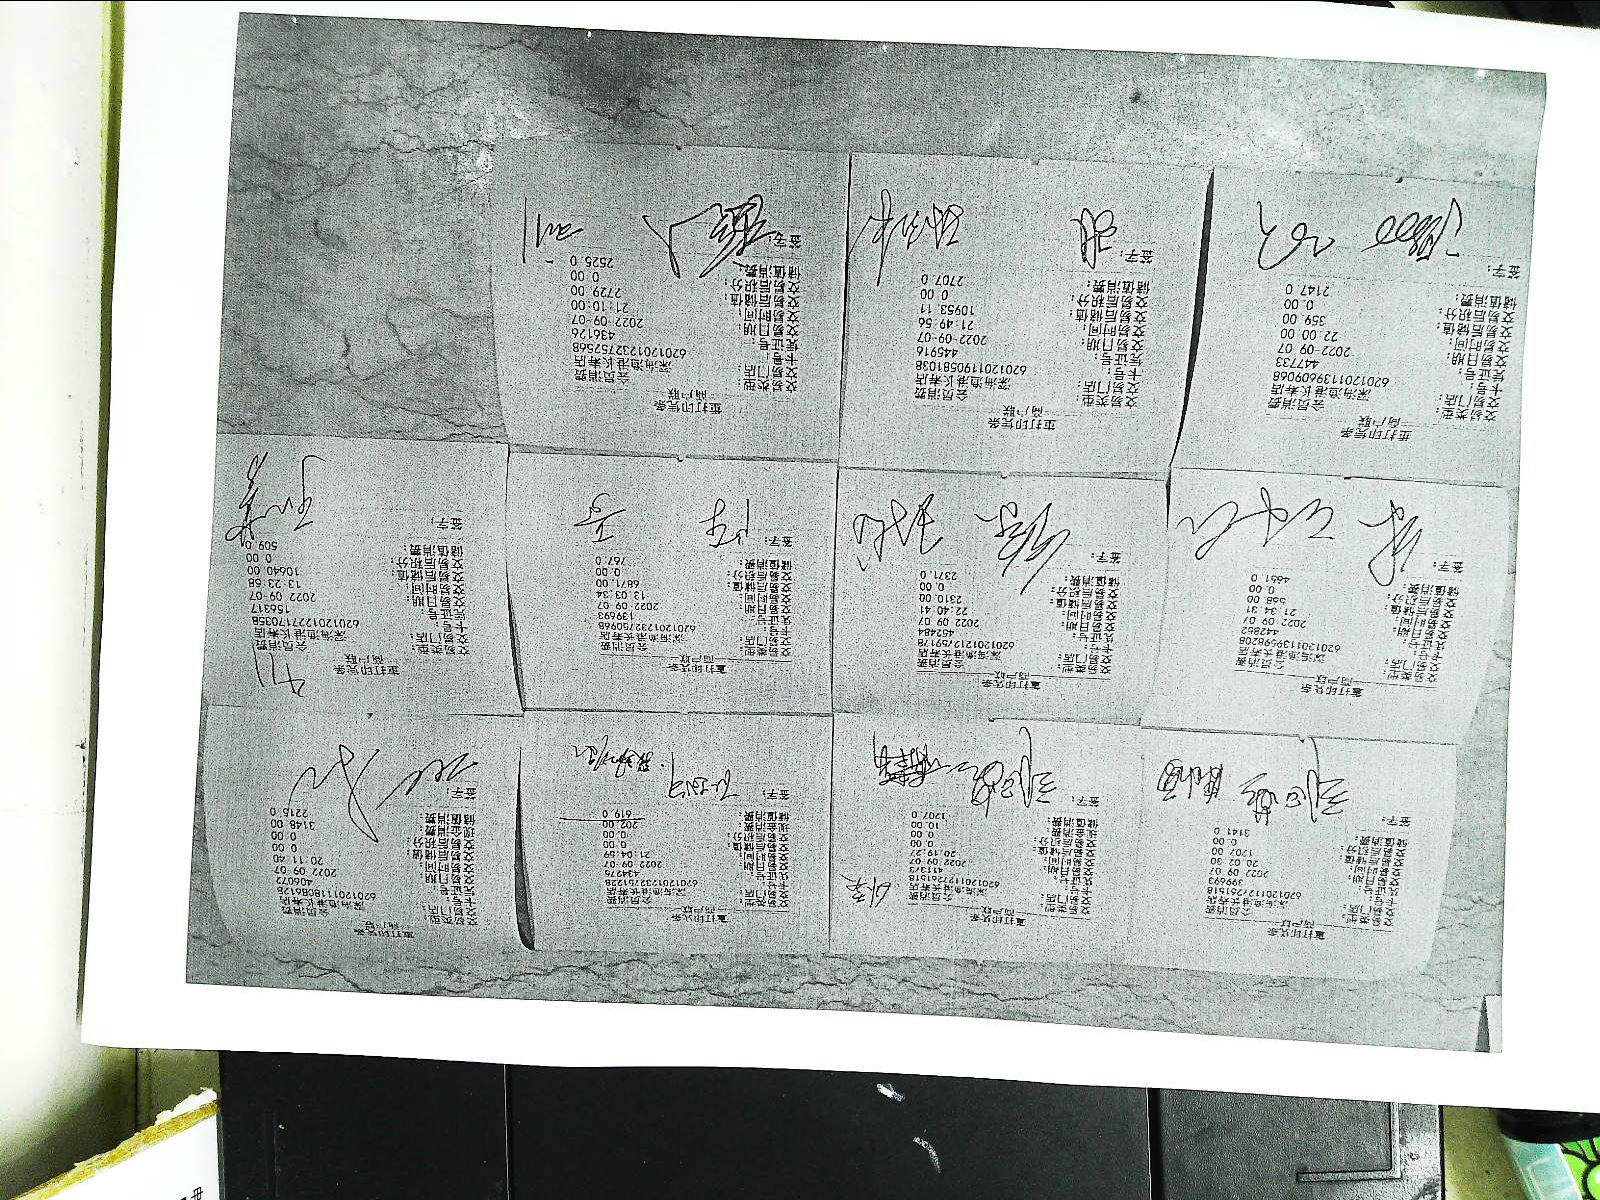 重打印凭条
商户联
交易类型: 会员消费
交易门店: 深海渔港长寿店
卡号: 6201201127261518
凭证号: 399693
交易日期: 2022-09-07
交易时间: 20:02:30
交易后储值: 1707.00
交易后积分: 0.00
储值消费: 3141.0
签字:
重打印凭条
商户联
交易类型: 会员消费
交易门店: 深海渔港长寿店
卡号: 6201201127261518
凭证号: 411373
交易日期: 2022-09-07
交易时间: 20:19:27
交易后储值: 0.00
交易后积分: 0.00
现金消费: 10.00
储值消费: 1707.0
签字:
重打印凭条
商户联
交易类型: 会员消费
交易门店: 深海渔港长寿店
卡号: 6201201232751228
凭证号: 434575
交易日期: 2022-09-07
交易时间: 21:04:59
交易后储值: 0.00
交易后积分: 0.00
现金消费: 202.00
储值消费: 619.0
签字:
重打印凭条
商户联
交易类型: 会员消费
交易门店: 深海渔港长寿店
卡号: 6201201118086128
凭证号: 406072
交易日期: 2022-09-07
交易时间: 20:11:40
交易后储值: 0.00
交易后积分: 0.00
现金消费: 3148.00
储值消费: 2215.0
签字:
重打印凭条
商户联
交易类型: 会员消费
交易门店: 深海渔港长寿店
卡号: 6201201139598208
凭证号: 442852
交易日期: 2022-09-07
交易时间: 21:34:31
交易后储值: 568.00
交易后积分: 0.00
储值消费: 4651.0
签字:
重打印凭条
商户联
交易类型: 会员消费
交易门店: 深海渔港长寿店
卡号: 6201201212759178
凭证号: 452484
交易日期: 2022-09-07
交易时间: 22:40:41
交易后储值: 2310.00
交易后积分: 0.00
储值消费: 2371.0
签字:
重打印凭条
商户联
交易类型: 会员消费
交易门店: 深海渔港长寿店
卡号: 6201201232750968
凭证号: 139693
交易日期: 2022-09-07
交易时间: 13:03:34
交易后储值: 6871.00
交易后积分: 0.00
储值消费: 767.0
签字:
重打印凭条
商户联
交易类型: 会员消费
交易门店: 深海渔港长寿店
卡号: 6201201227170358
凭证号: 156317
交易日期: 2022-09-07
交易时间: 13:23:58
交易后储值: 10640.00
交易后积分: 0.00
储值消费: 509.0
签字:
重打印凭条
商户联
交易类型: 会员消费
交易门店: 深海渔港长寿店
卡号: 6201201139609068
凭证号: 447733
交易日期: 2022-09-07
交易时间: 22:00:00
交易后储值: 359.00
交易后积分: 0.00
储值消费: 2147.0
签字:
重打印凭条
商户联
交易类型: 会员消费
交易门店: 深海渔港长寿店
卡号: 6201201190581038
凭证号: 445916
交易日期: 2022-09-07
交易时间: 21:49:56
交易后储值: 10953.11
交易后积分: 0.00
储值消费: 2707.0
签字:
重打印凭条
商户联
交易类型: 会员消费
交易门店: 深海渔港长寿店
卡号: 6201201232752568
凭证号: 436126
交易日期: 2022-09-07
交易时间: 21:10:00
交易后储值: 2729.00
交易后积分: 0.00
储值消费: 2525.0
签字: